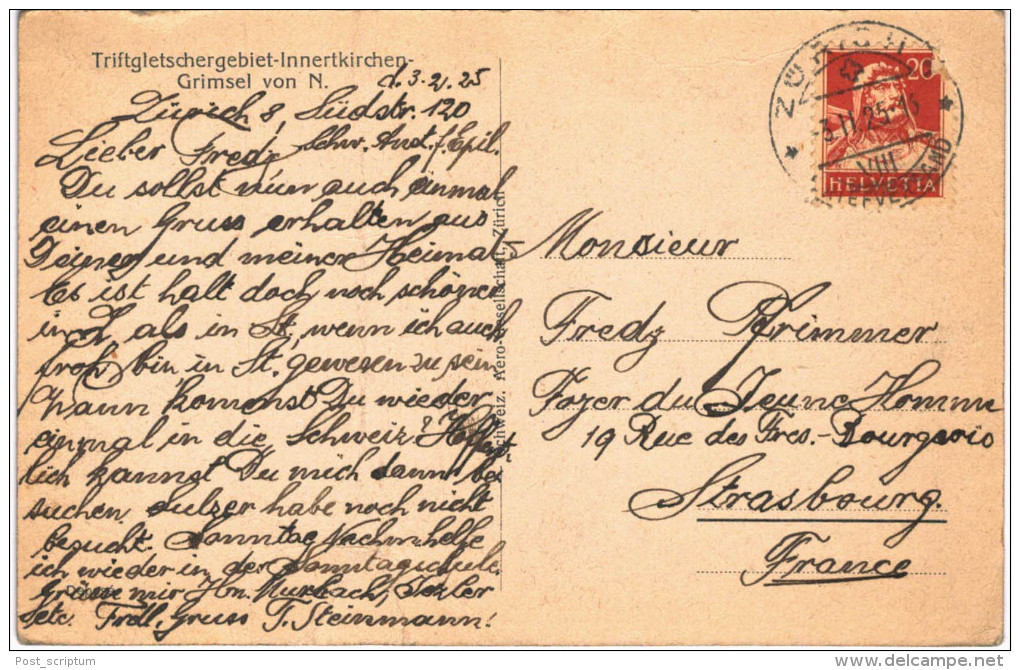 Triftgletschergebiet-Innertkirchen-
Grimsel von N.
d. 3.2.25
Zürich 8, Südstr. 120
Schw. Anst. f. Epil.
Lieber Fredy
Du sollst nun auch einmal
einen Gruss erhalten aus
Deiner und meiner Heimat.
Es ist halt doch noch schöner
in Z. als in St. wenn ich auch
froh bin in St. gewesen zu sein
Wann kommst Du wieder
einmal in die Schweiz? Hoffent-
lich kannst Du mich dann be
suchen. Sulzer habe noch nicht
besucht. Sonntag Nachm. helfe
ich wieder in der Sonntagschule
Grüsse mir Hrn. Murbach,
etc. Frdl. Gruss T. Steinmann.
Schweiz. Aero-Gesellschaft, Zürich
ZÜRICH
3.II.25
VIII
20
HELVETIA
Monsieur
Fredy Pfrimmer
Foyer du Jeune Homme
19 Rue des Fres.-Bourgeois
Strasbourg.
France
Post_scriptum
delcampe.net